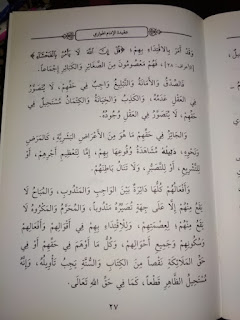 عقيدة الإمام الهواري
وَقَدْ أَمَرَ بِالاقْتِدَاءِ بِهِمْ، ﴿قُلْ إِنَّ اللَّهَ لَا يَأْمُرُ بِالْفَحْشَاءِ﴾
[الأعراف: ٢٨]، فَهُمْ مَعْصُومُونَ مِنَ الصَّغَائِرِ وَالكَبَائِرِ إِجْمَاعاً.
فَالصِّدْقُ وَالأَمَانَةُ وَالتَّبْلِيغُ وَاجِبٌ فِي حَقِّهِمْ، لَا يُتَصَوَّرُ
فِي العَقْلِ عَدَمُهُ، وَالكَذِبُ وَالخِيَانَةُ وَالكِتْمَانُ مُسْتَحِيلٌ فِي
حَقِّهِمْ، لَا يُتَصَوَّرُ فِي العَقْلِ وُجُودُهُ.
وَالجَائِزُ فِي حَقِّهِمْ مَا هُوَ مِنَ الأَعْرَاضِ البَشَرِيَّةِ، كَالمَرَضِ
وَنَحْوِهِ، دَلِيلُهُ مُشَاهَدَةُ وُقُوعِهَا بِهِمْ، إِمَّا لِتَعْظِيمِ أَجْرِهِمْ، أَوْ
لِلتَّشْرِيعِ، أَوْ لِلتَّصَبُّرِ، وَلَا تَنَالُ بَاطِنَهُمْ.
وَأَفْعَالُهُمْ كُلُّهَا دَائِرَةٌ بَيْنَ الوَاجِبِ وَالمَنْدُوبِ، وَالمُبَاحُ لَا
يَقَعُ مِنْهُمْ إِلَّا عَلَى جِهَةٍ تُصَيِّرُهُ مَنْدُوباً، وَالمُحَرَّمُ وَالمَكْرُوهُ لَا
يَقَعُ مِنْهُمْ؛ لِعِصْمَتِهِمْ، وَلِلاقْتِدَاءِ بِهِمْ فِي أَقْوَالِهِمْ وَأَفْعَالِهِمْ
وَسُكُوتِهِمْ وَجَمِيعِ أَحْوَالِهِمْ، وَكُلُّ مَا أَوْهَمَ فِي حَقِّهِمْ أَوْ فِي
حَقِّ المَلَائِكَةِ نَقْصاً مِنَ الكِتَابِ وَالسُّنَّةِ يَجِبُ تَأْوِيلُهُ، وَإِنَّهُ
مُسْتَحِيلُ الظَّاهِرِ قَطْعاً، كَمَا فِي حَقِّ اللَّهِ تَعَالَى.
٢٧